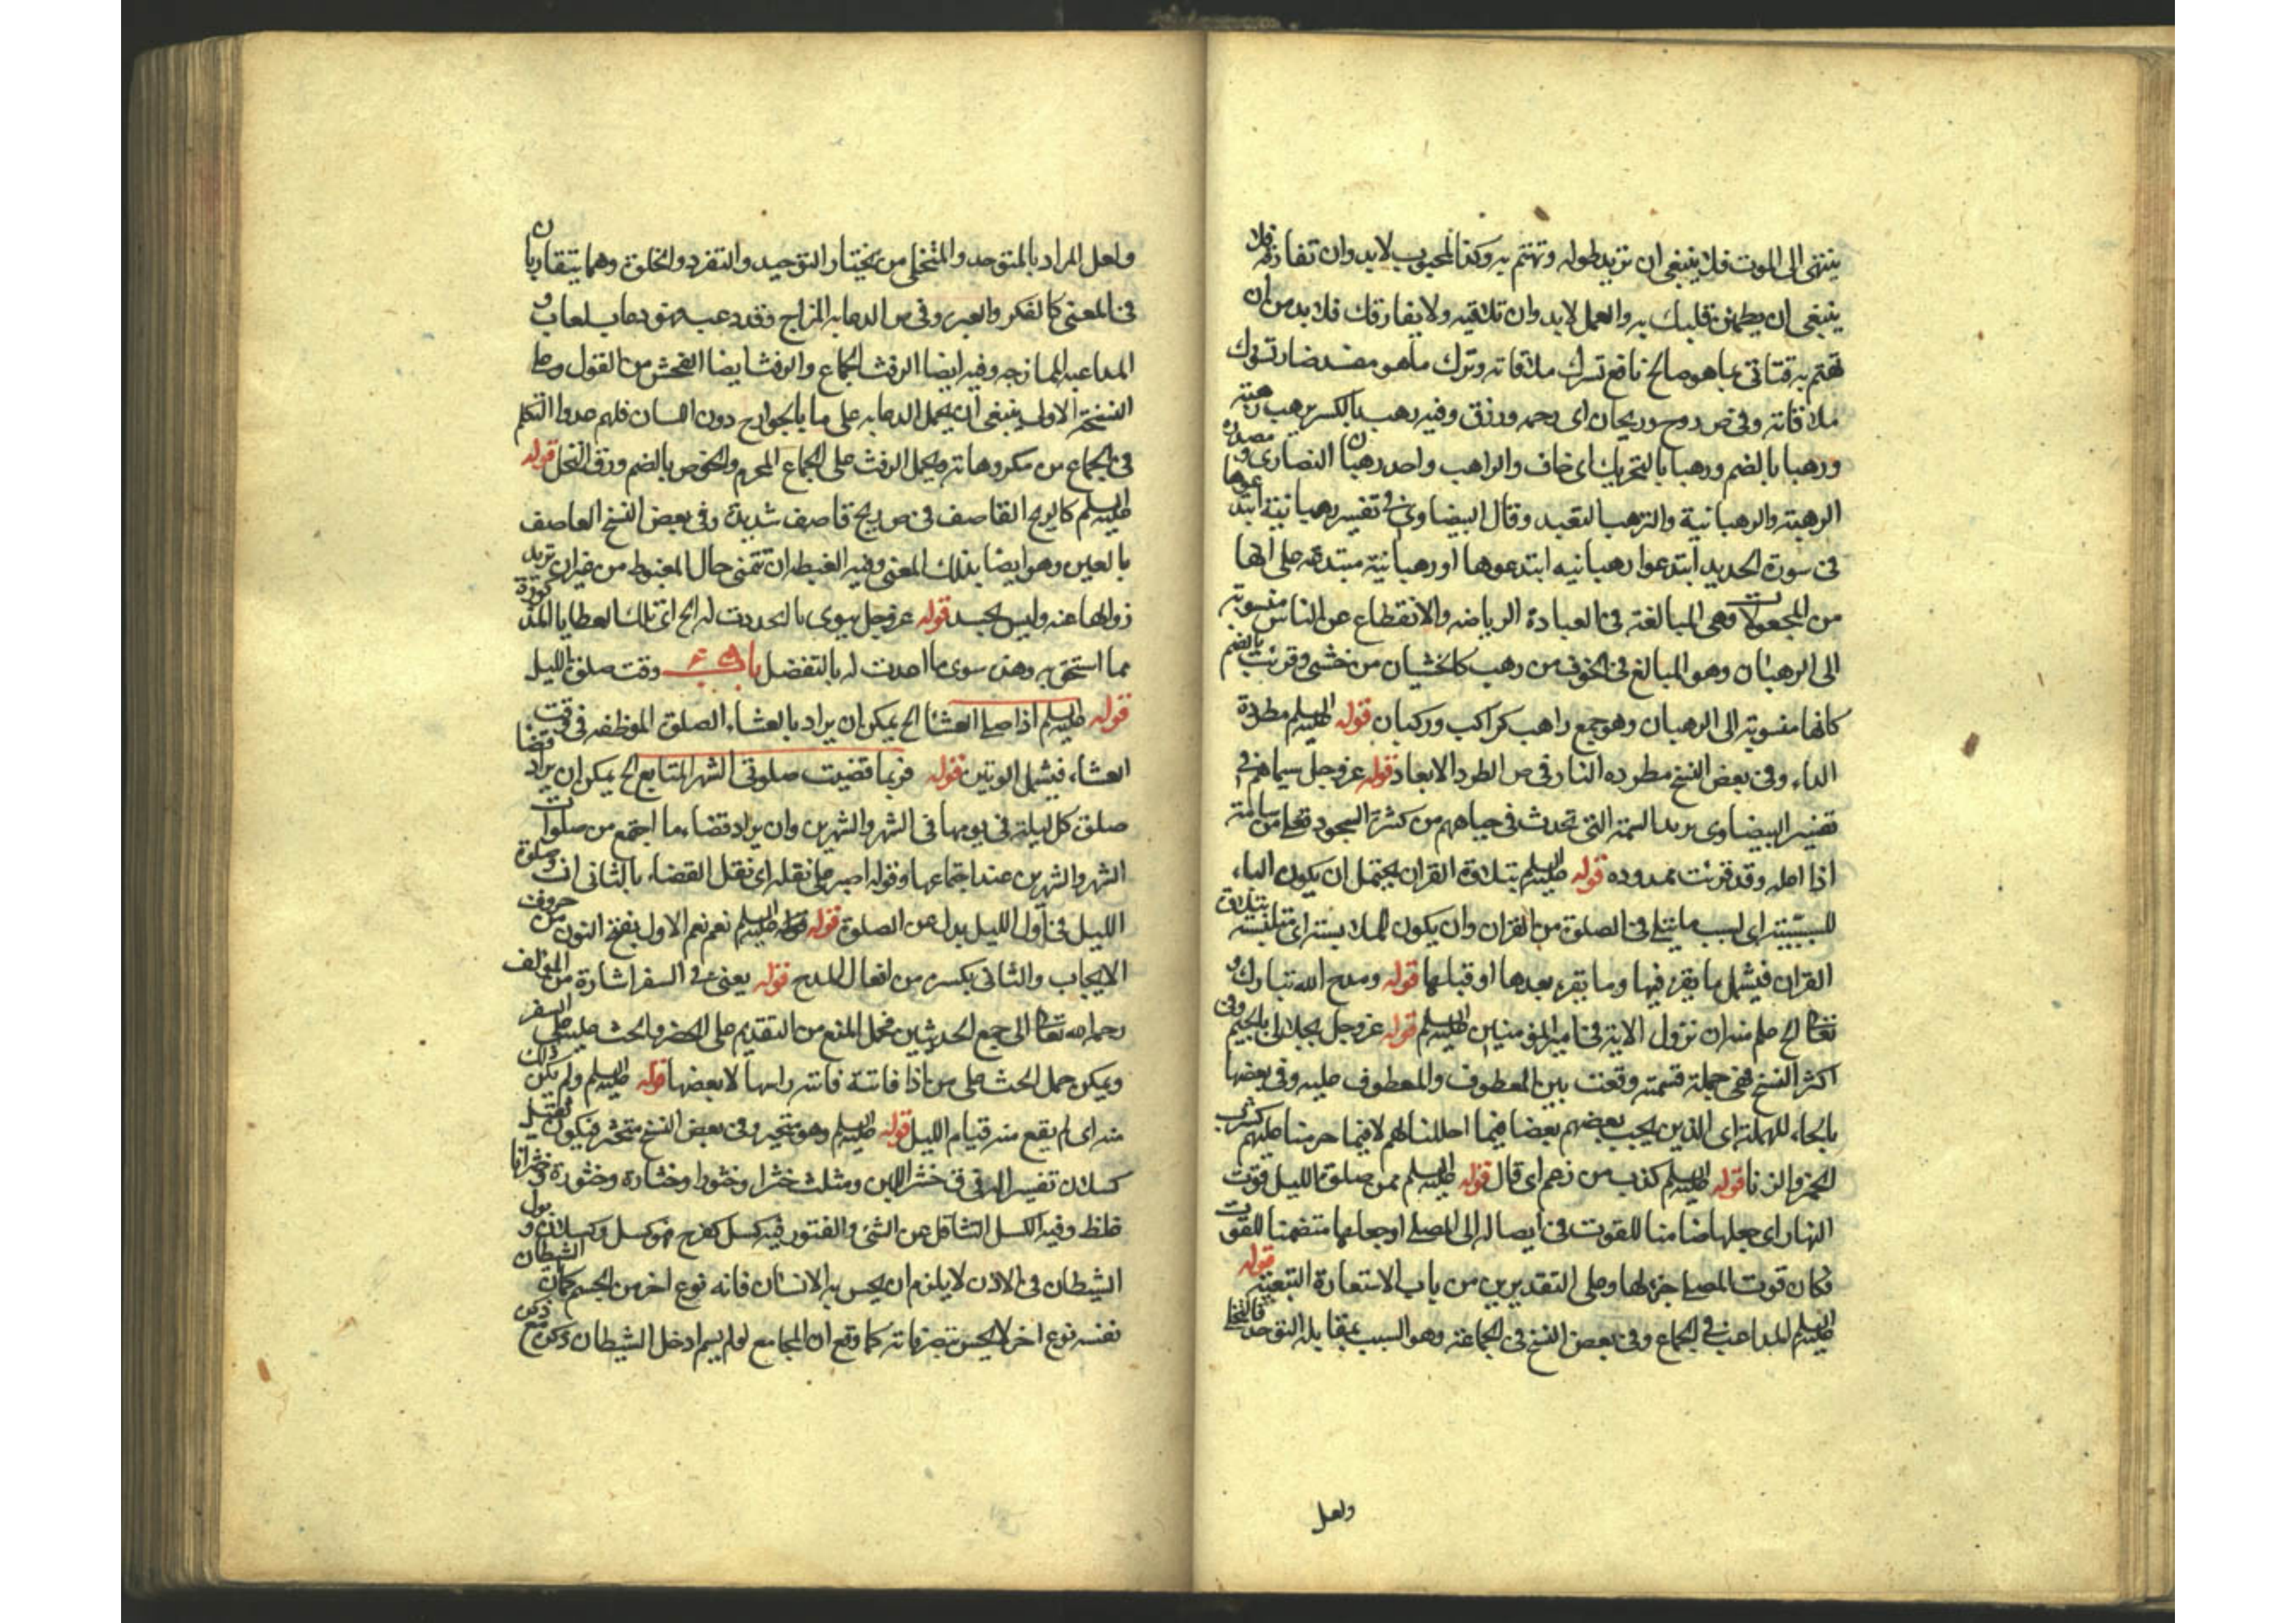 ينتهى الى الموت فلا ينبغى ان تريد طوله وتهتم به وكذا المحبوب لابد وان تفارقه فلا
ينبغى ان يطمئن قلبك به والعمل لابد وان تلاقيه ولا يفارقك فلا بد من ان
تهتم به فتاتى بما هو صالح نافع تسرك ملاقاته وترك ما هو مفسد ضار تسوك
ملاقاته وفى ص روح وريحان اى رحمه ورزق وفيه رهب بالكسر يرهب رهبة
ورهبا بالضم ورهبا بالتحريك اى خاف والراهب واحد رهبان النصارى ومصدره
الرهبة والرهبانية والترهب التعبد وقال البيضاوى فى تفسير رهبانية ابتدعوها
فى سورة الحديد ابتدعوا رهبانيه ابتدعوها او رهبانية مبتدعه على انها
من المجعولات وهى المبالغة فى العبادة الرياضه والانقطاع عن الناس منسوبه
الى الرهبان وهو المبالغ فى الخوف من رهب كالخشيان من خشى وقرئت بالضم
كانها منسوبة الى الرهبان وهو جمع راهب كراكب وركبان قوله عليه السلم مطردة
الداء وفى بعض النسخ مطرده النار فى ص الطرد الابعاد قوله عز وجل سيماهم فى
تفسير البيضاوى يريد السمة التى تحدث فى جباههم من كثرة السجود فعلى من سامه
اذا اعله وقد قرئت ممدوده قوله عليه السلم بتلاوة القران يحتمل ان يكون الباء
للسببية اى لسبب ما يتلى فى الصلوة من القران وان يكون للملابسة اى متلبسة بتلاوة
القران فيشمل ما يقرء فيها وما يقرء بعدها او قبلها قوله ومدح الله تبارك و
تعالى الخ علم منه ان نزول الاية فى امير المؤمنين عليه السلم قوله عز وجل بجلالى بالجيم وفى
اكثر النسخ فهى جملة قسمية وقعت بين المعطوف والمعطوف عليه وفى بعضها
بالحاء المهملة اى الذين يحب بعضهم بعضا فيما احللنا لهم لا فيما حرمنا عليهم كشرب
الخمر والزنا قوله عليه السلم كذب من زعم اى قال قوله عليه السلم ضمن صلوة الليل قوت
النهار اى جعلها ضامنا للقوت فى ايصاله الى المصلى او جعلها متضمنا للقوت
فكان قوت المصلى جزء لها وعلى التقديرين من باب الاستعارة التبعية قوله
عليه السلم المداعب فى الجماع وفى بعض النسخ فى الجماعة وهو السبب بمقابله التوحد فالتخلى
ولعل
ولعل المراد بالمتوحد والمتخلى من يختار التوحيد والتفرد والخلوة وهما يتقاربان
فى المعنى كالفكر والعبر وفى ص الدعابه المزاح وقد دعب فهو دعاب لعاب و
المداعبه الممازحه وفيه ايضا الرفث الجماع والرفث ايضا الفحش من القول وعلى
النسخة الاولى ينبغى ان يحمل الدعابه على ما بالجوارح دون اللسان فلهم عدوا التكلم
فى الجماع من مكروهاته ويحمل الرفث على الجماع المحرم والخوص بالضم ورق النخل قوله
عليه السلم كالريح القاصف فى ص ريح قاصف شديدة وفى بعض النسخ العاصف
بالعين وهو ايضا بذلك المعنى وفيه الغبطه ان تتمنى حال المغبوط من غير ان تريد
زوالها عنه وليس بحسد قوله عز وجل سوى ما اعددت له الخ اى تلك العطايا المذكورة
مما استحق به وهى سوى ما اعددت له بالتفضل باب وقت صلوة الليل
قوله عليه السلم اذا صلى العشا الخ يمكن ان يراد بالعشاء الصلوة الموظفه فى وقت
العشاء فيشمل الوتين قوله فربما قضيت صلوتى الشهر المتتابع الخ يمكن ان يراد قضا
صلوة كل ليلة فى يومها فى الشهر والشهرين وان يراد قضاء ما اجتمع من صلوات
الشهر والشهرين عند اجتماعها وقوله اصبر على ثقله اى ثقل القضاء بالثانى ان صلوة
الليل فى اول الليل بدل عن الصلوة قوله عليه السلم نعم نعم الاول بفتح النون من حروف
الايجاب والثانى بكسر من افعال المدح قوله يعنى فى السفر اشارة من المؤلف
رحمه الله تعالى الى جمع الحديثين فحمل المنع من التقديم على الحضر والحث عليه على السفر
ويمكن حمل الحث على من اذا فاتته فاتته راسها لا بعضها قوله عليه السلم ولم يكن ذلك
منه اى لم يقع منه قيام الليل قوله عليه السلم وهو متخير وفى بعض النسخ متخثر فيكون ثقيل
كسلان تفسير الد فى ق خثر اللبن ومثلث خثرا وخثورا وخثارة وخثورة وخثرانا
غلظ وفيه الكسل التثاقل عن الشئ والفتور فيه كسل كفرح فهو كسل وكسلان و بول
الشيطان فى الاذن لا يلزم ان يحس به الانسان فانه نوع اخر من الجسم كما ان الشيطان
نفسه نوع اخر لا يحس بتصرفاته كما وقع ان المجامع لو لم يسم ادخل الشيطان ذكره مع